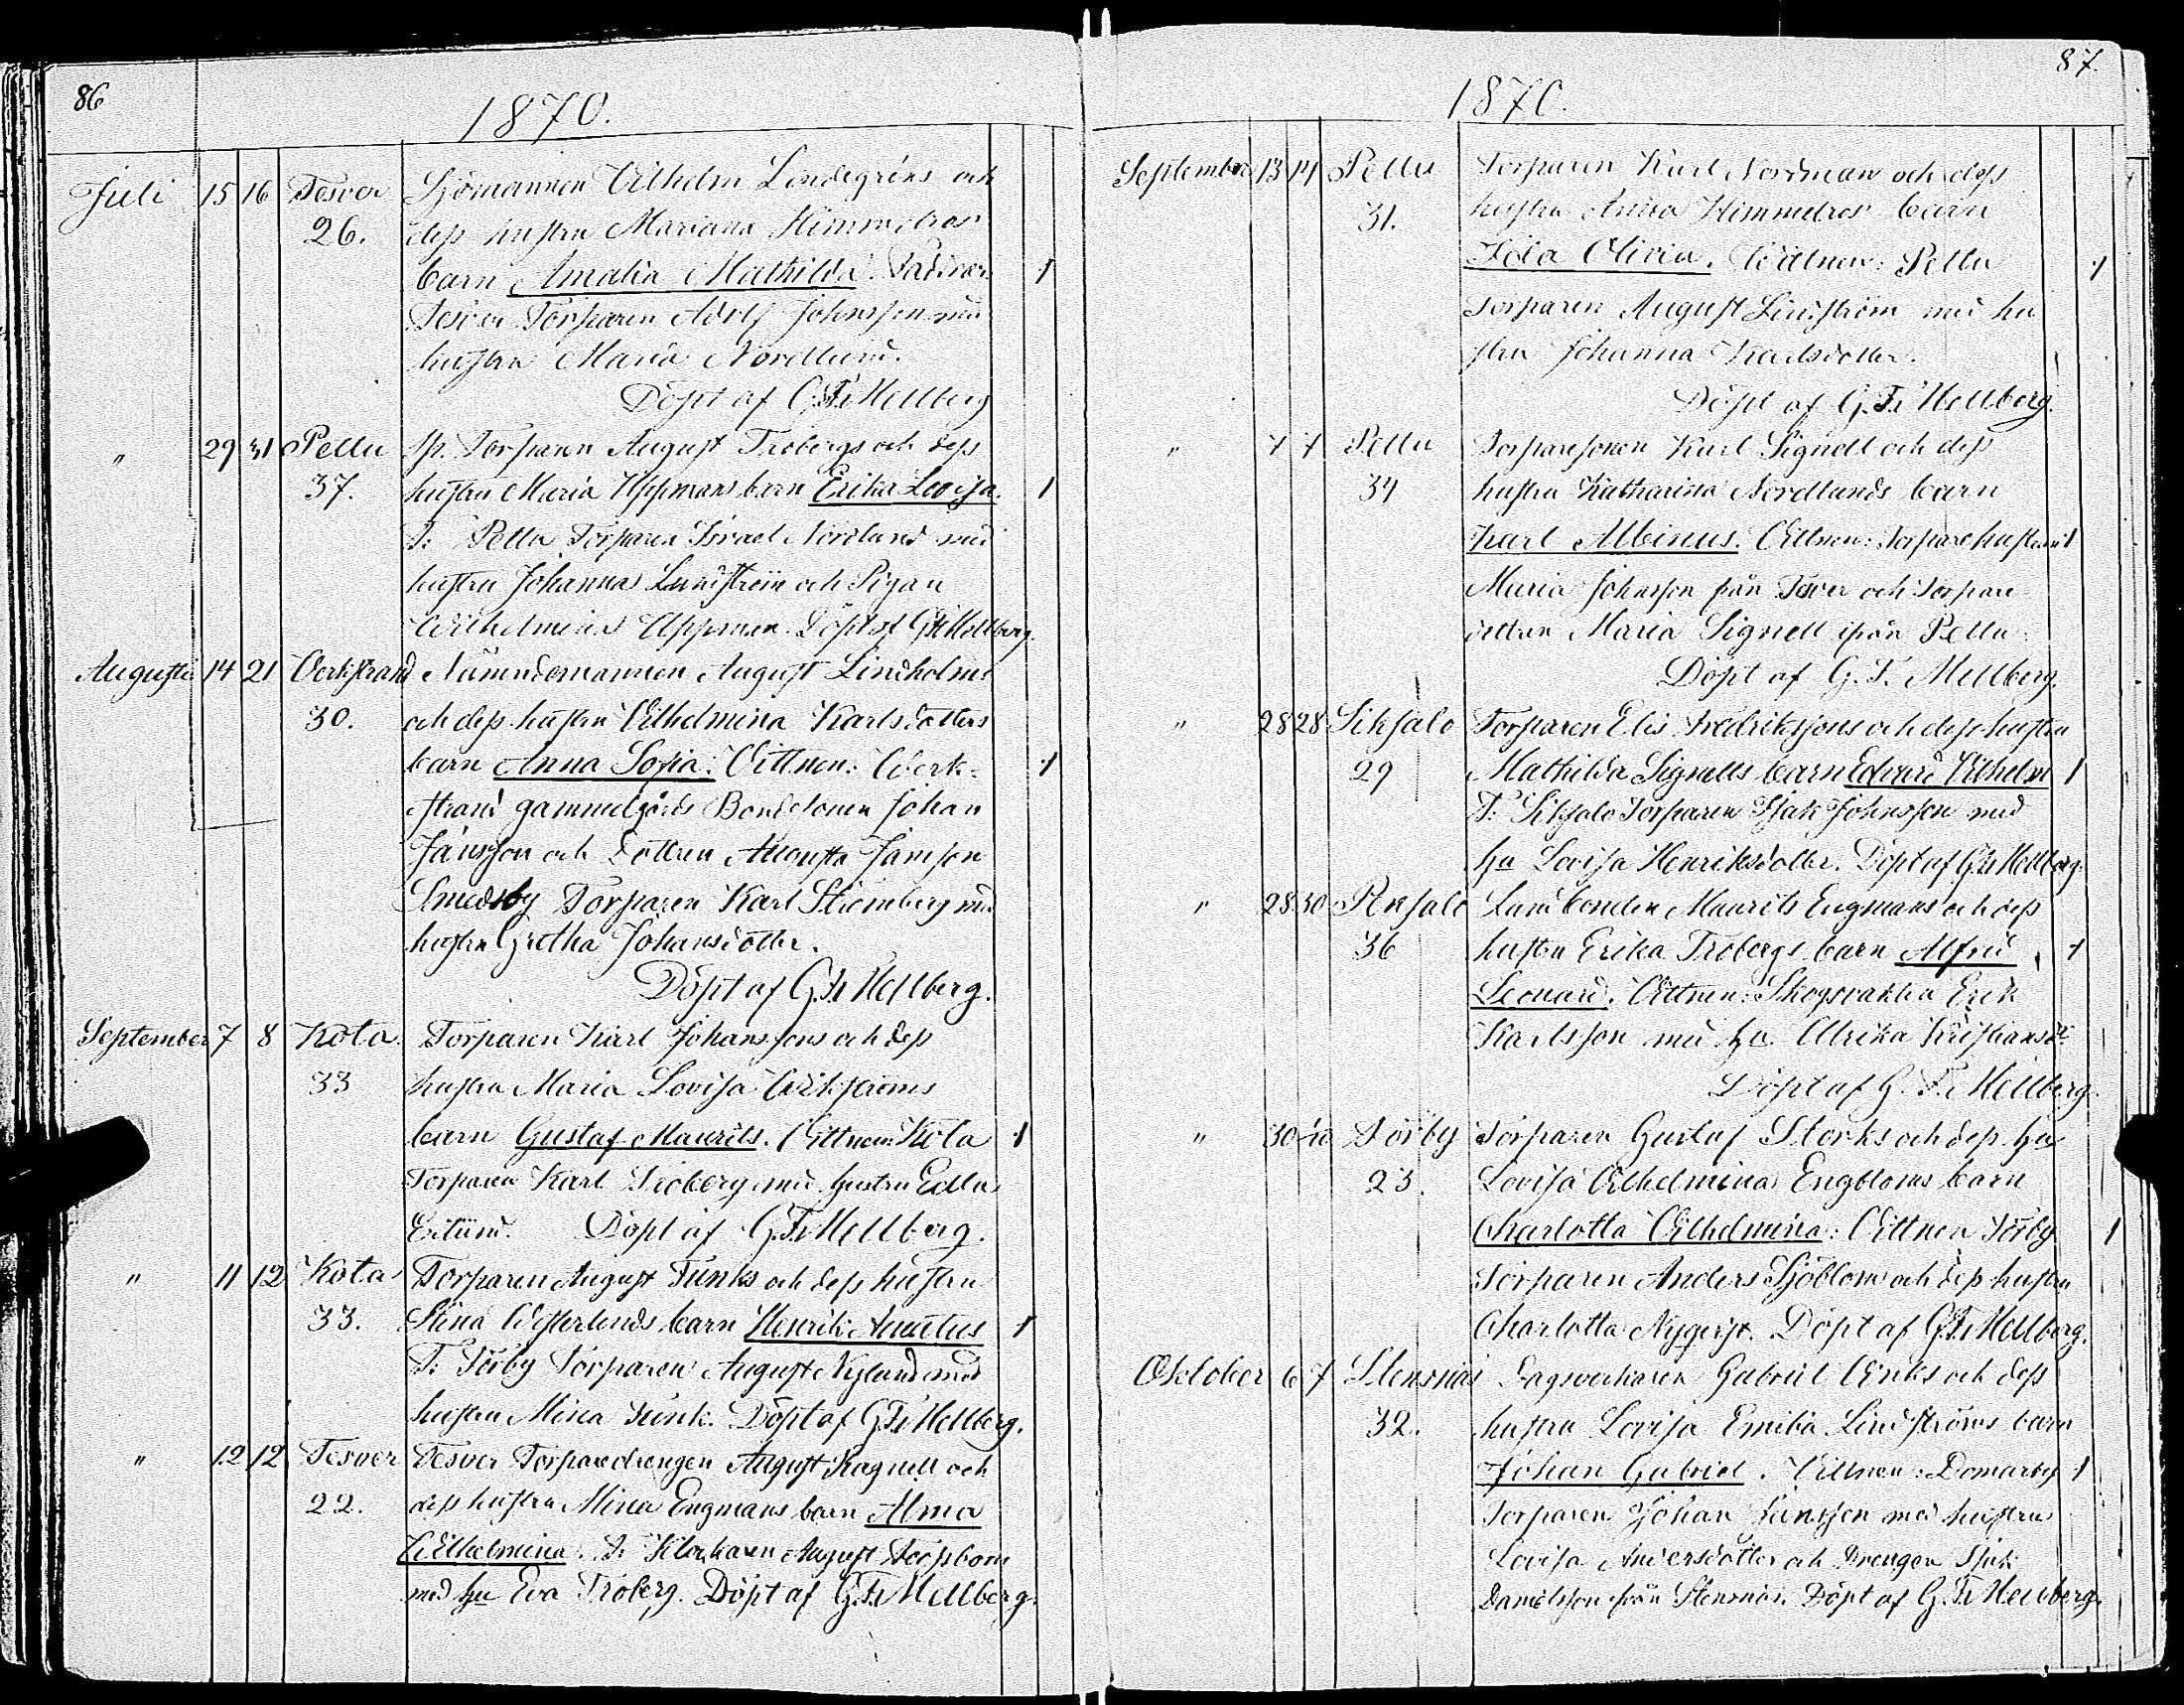 86
1870.
Juli 15 16 Tesver Sjömannen Vilhelm Lindegrens och
26. dess hustru Mariana Himmelros
barn Amalia Mathilda. Faddrar 1
Tesver Torparen Adolf Johnsson med
hustru Maria Nordlund.
Döpt af G.F. Mellberg
" 29 31 Pellu Sp. Torparen August Trobergs och dess
37. hustru Maria Uppmans barn Erika Lovisa. 1
F: Pellu Torparen Israel Nordlund med
hustru Johanna Lundström och Pigan
Wilhelmina Uppman. Döpt af G.F. Mellberg.
Augusti 14 21 Verkstrand Nämndemannen August Lindholms
30. och dess hustru Vilhelmina Karlsdotters
barn Anna Sofia. Vittnen: Verk- 1
strand gammelgårds Bondesonen Johan
Jansson och Dottren Augusta Jansson
Smedsby Torparen Karl Strömberg med
hustru Gretha Johansdotter.
Döpt af G.F. Mellberg.
September 7 8 Kota. Torparen Karl Johanssons och dess
33 hustru Maria Lovisa Wikströms
barn Gustaf Maurits. Vittnen: Kota 1
Torparen Karl Troberg med hustru Edla
Döpt af G.F. Mellberg.
" 11 12 Kota Torparen August Funks och dess hustru
33. Stina Westerlunds barn Henrik 1
F: Törby Torparen August Nylund med
hustru Mina Funk. Döpt af G.F. Mellberg.
" 12 12 Tesver Tesver Torparedrengen August Ragnell och
22. dess hustru Mina Engmans barn Alma
Wilhelmina. F: Klockaren August
med hu Eva Troberg. Döpt af G.F. Mellberg.
87.
1870.
September 13 14 Pellu Torparen Karl Nordman och dess
31. hustru Anna Himmelros barn
Ida Olivia. Vittnen: Pellu 1
Torparen August Lindström med hu
stru Johanna Karlsdotter.
Döpt af G.F. Mellberg.
" 7 7 Pellu Torparesonen Karl Signell och dess
34 hustru Katharina Nordlunds barn
Karl Albinus. Vittnen: Torparehustrun 1
Maria Johnsson från Tesver och Torpare
dottren Maria Signell ifrån Pellu.
Döpt af G.F. Mellberg.
" 28 28 Siksalo Torparen Elis Fredrikssons och dess hustru
29 Mathilda Signells barn Edvard Vilhelm 1
F: Siksalo Torparen Isak Johnsson med
hu Lovisa Henriksdotter. Döpt af G.F. Mellberg.
" 28 30 Landbonden Maurits Engmans och dess
36 hustru Erika Trobergs barn Alfred 1
Leonard. Vittnen: Skogsvakten Erik
Karlsson med hu Ulrika Kristiansdr
Döpt af G.F. Mellberg.
" 30 Törby Torparen Gustaf Storks och dess hu
23. Lovisa Vilhelmina Engbloms barn
Charlotta Vilhelmina: Vittnen Törby 1
Torparen Anders Sjöblom och dess hustru
Charlotta Nyqvist. Döpt af G.F. Mellberg.
Oktober 6 7 Stensnäs Gabriel och dess
32. hustru Lovisa Emilia Lindströms barn
Johan Gabriel. Vittnen: Domarby 1
Torparen Johan Jansson med hustru
Lovisa Andersdotter och Drengen Isak
Danielsson från Stensnäs. Döpt af G.F. Mellberg.